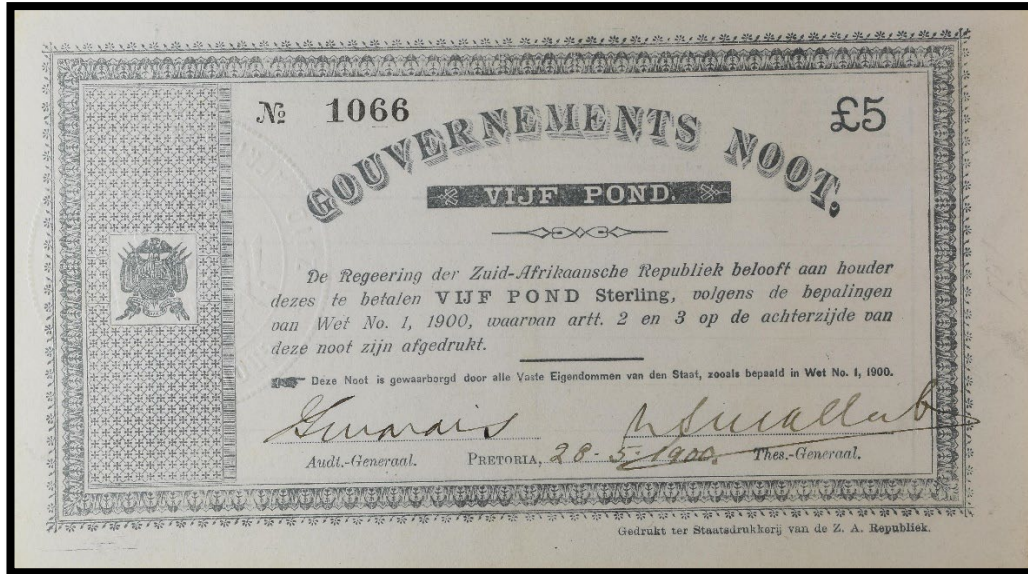 № 1066
£5
GOUVERNEMENTS NOOT.
VIJF POND.
De Regeering der Zuid-Afrikaansche Republiek belooft aan houder
dezes te betalen VIJF POND Sterling, volgens de bepalingen
van Wet No. 1, 1900, waarvan artt. 2 en 3 op de achterzijde van
deze noot zijn afgedrukt.
Deze Noot is gewaarborgd door alle Vaste Eigendommen van den Staat, zooals bepaald in Wet No. 1, 1900.
Audt.-Generaal. PRETORIA, 28-5-1900. Thes.-Generaal.
Gedrukt ter Staatsdrukkerij van de Z. A. Republiek.